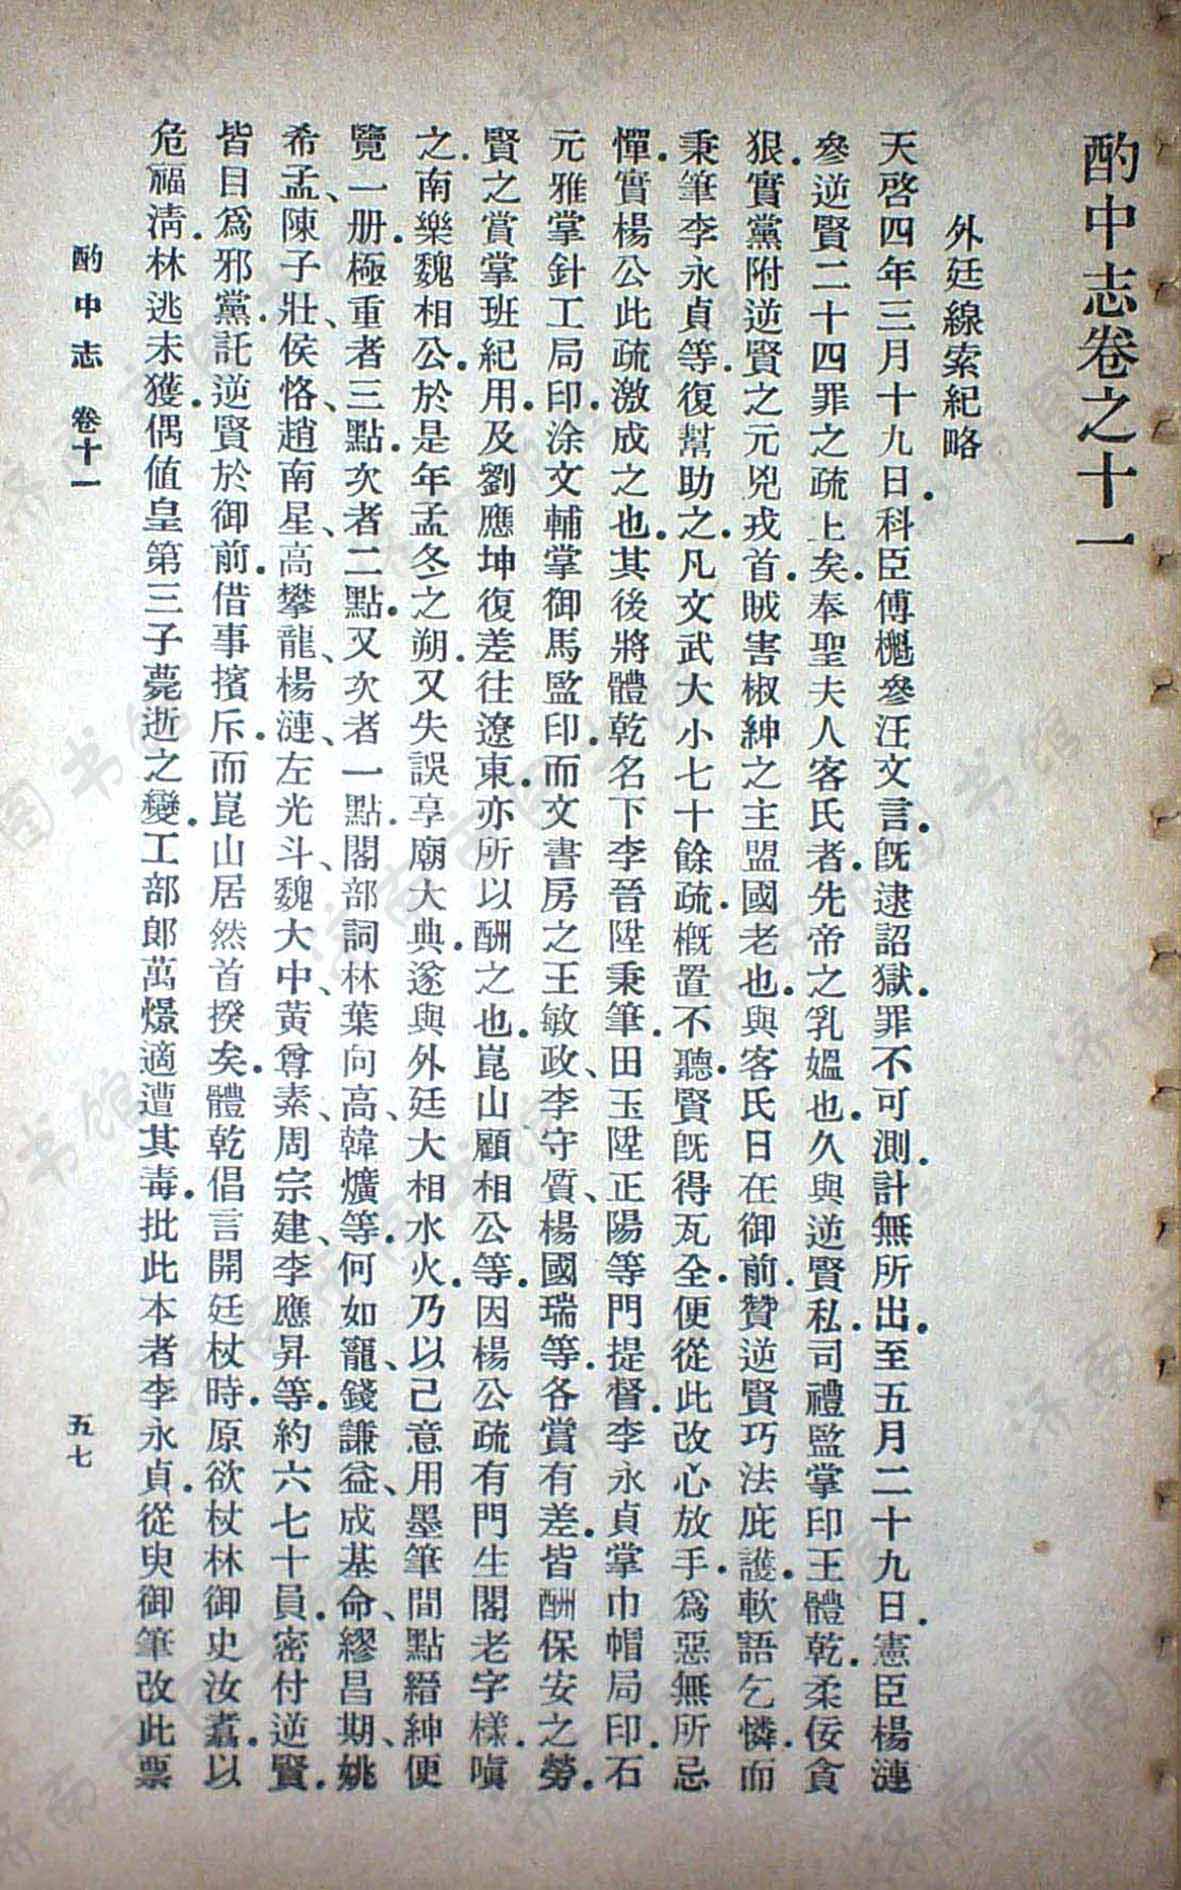 酌中志卷之十一
外廷線索紀略
天啓四年三月十九日。科臣傅櫆參汪文言。旣逮詔獄。罪不可測。計無所出。至五月二十九日。憲臣楊漣
參逆賢二十四罪之疏上矣。奉聖夫人客氏者。先帝之乳媼也。久與逆賢私。司禮監掌印王體乾。柔佞貪
狠。實黨附逆賢之元兇戎首。賊害椒紳之主盟國老也。與客氏日在御前。贊逆賢巧法庇護。軟語乞憐。而
秉筆李永貞等。復幫助之。凡文武大小七十餘疏。槪置不聽。賢旣得瓦全。便從此改心放手。爲惡無所忌
憚。實楊公此疏激成之也。其後將體乾名下李晉陞秉筆。田玉陞正陽等門提督。李永貞掌巾帽局印。石
元雅掌針工局印。涂文輔掌御馬監印。而文書房之王敏政、李守質、楊國瑞等。各賞有差。皆酬保安之勞。
賢之賞掌班紀用。及劉應坤復差往遼東。亦所以酬之也。崑山顧相公等。因楊公疏有門生閣老字樣。嗔
之。南樂魏相公。於是年孟冬之朔。又失誤享廟大典。遂與外廷大相水火。乃以己意用墨筆間點縉紳便
覽一册。極重者三點。次者二點。又次者一點。閣部詞林葉向高、韓爌等。何如寵、錢謙益、成基命、繆昌期、姚
希孟、陳子壯、侯恪、趙南星、高攀龍、楊漣、左光斗、魏大中、黃尊素、周宗建、李應昇等。約六七十員。密付逆賢。
皆目爲邪黨。託逆賢於御前。借事擯斥。而崑山居然首揆矣。體乾倡言開廷杖時。原欲杖林御史汝翥。以
危福淸。林逃未獲。偶值皇第三子薨逝之變。工部郞萬燝適遭其毒。批此本者李永貞。從臾御筆改此票
酌中志 卷十一
五七